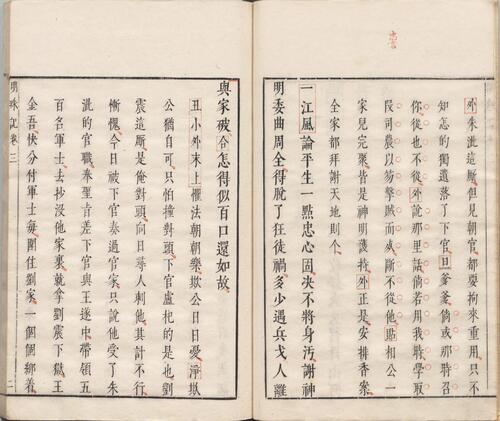 外朱泚這厮但見朝官都要拘來重用只不
知怎的獨遺落了下官旦爹爹倘或那時召
你從也不從外說那里話倘若用我時學取
段司農以笏擊賊而或斷不從他貼相公一
家兒完聚皆是神明護持外正是安排香案
全家都拜謝天地則个
一江風論平生一點忠心固決不將身汚謝神
明委曲周全得脫了狂徒禍多少遇兵戈人離
與家破合怎得似百口還如故
丑小外末上懼法朝朝樂欺公日日憂淨欺
公猶自可只怕撞對頭下官盧杞的是也劉
震這厮是俺對頭向日尋人刺他其計不行
慚愧今日被下官奏過官家只說他受了朱
泚的官職奉聖旨差下官與王遂中帶領五
百名軍士去抄沒他家裏就拿劉震下獄王
金吾快分付軍士每圍住劉家一個個綁着
明珠記卷三
二